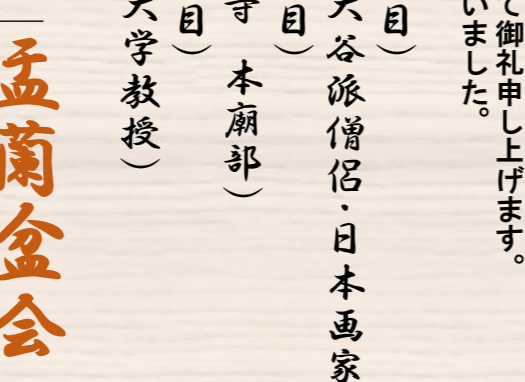 て御礼申し上げます。
いました。
目）
大谷派僧侶・日本画家
目）
寺 本廟部）
目）
大学教授）
盂蘭盆会